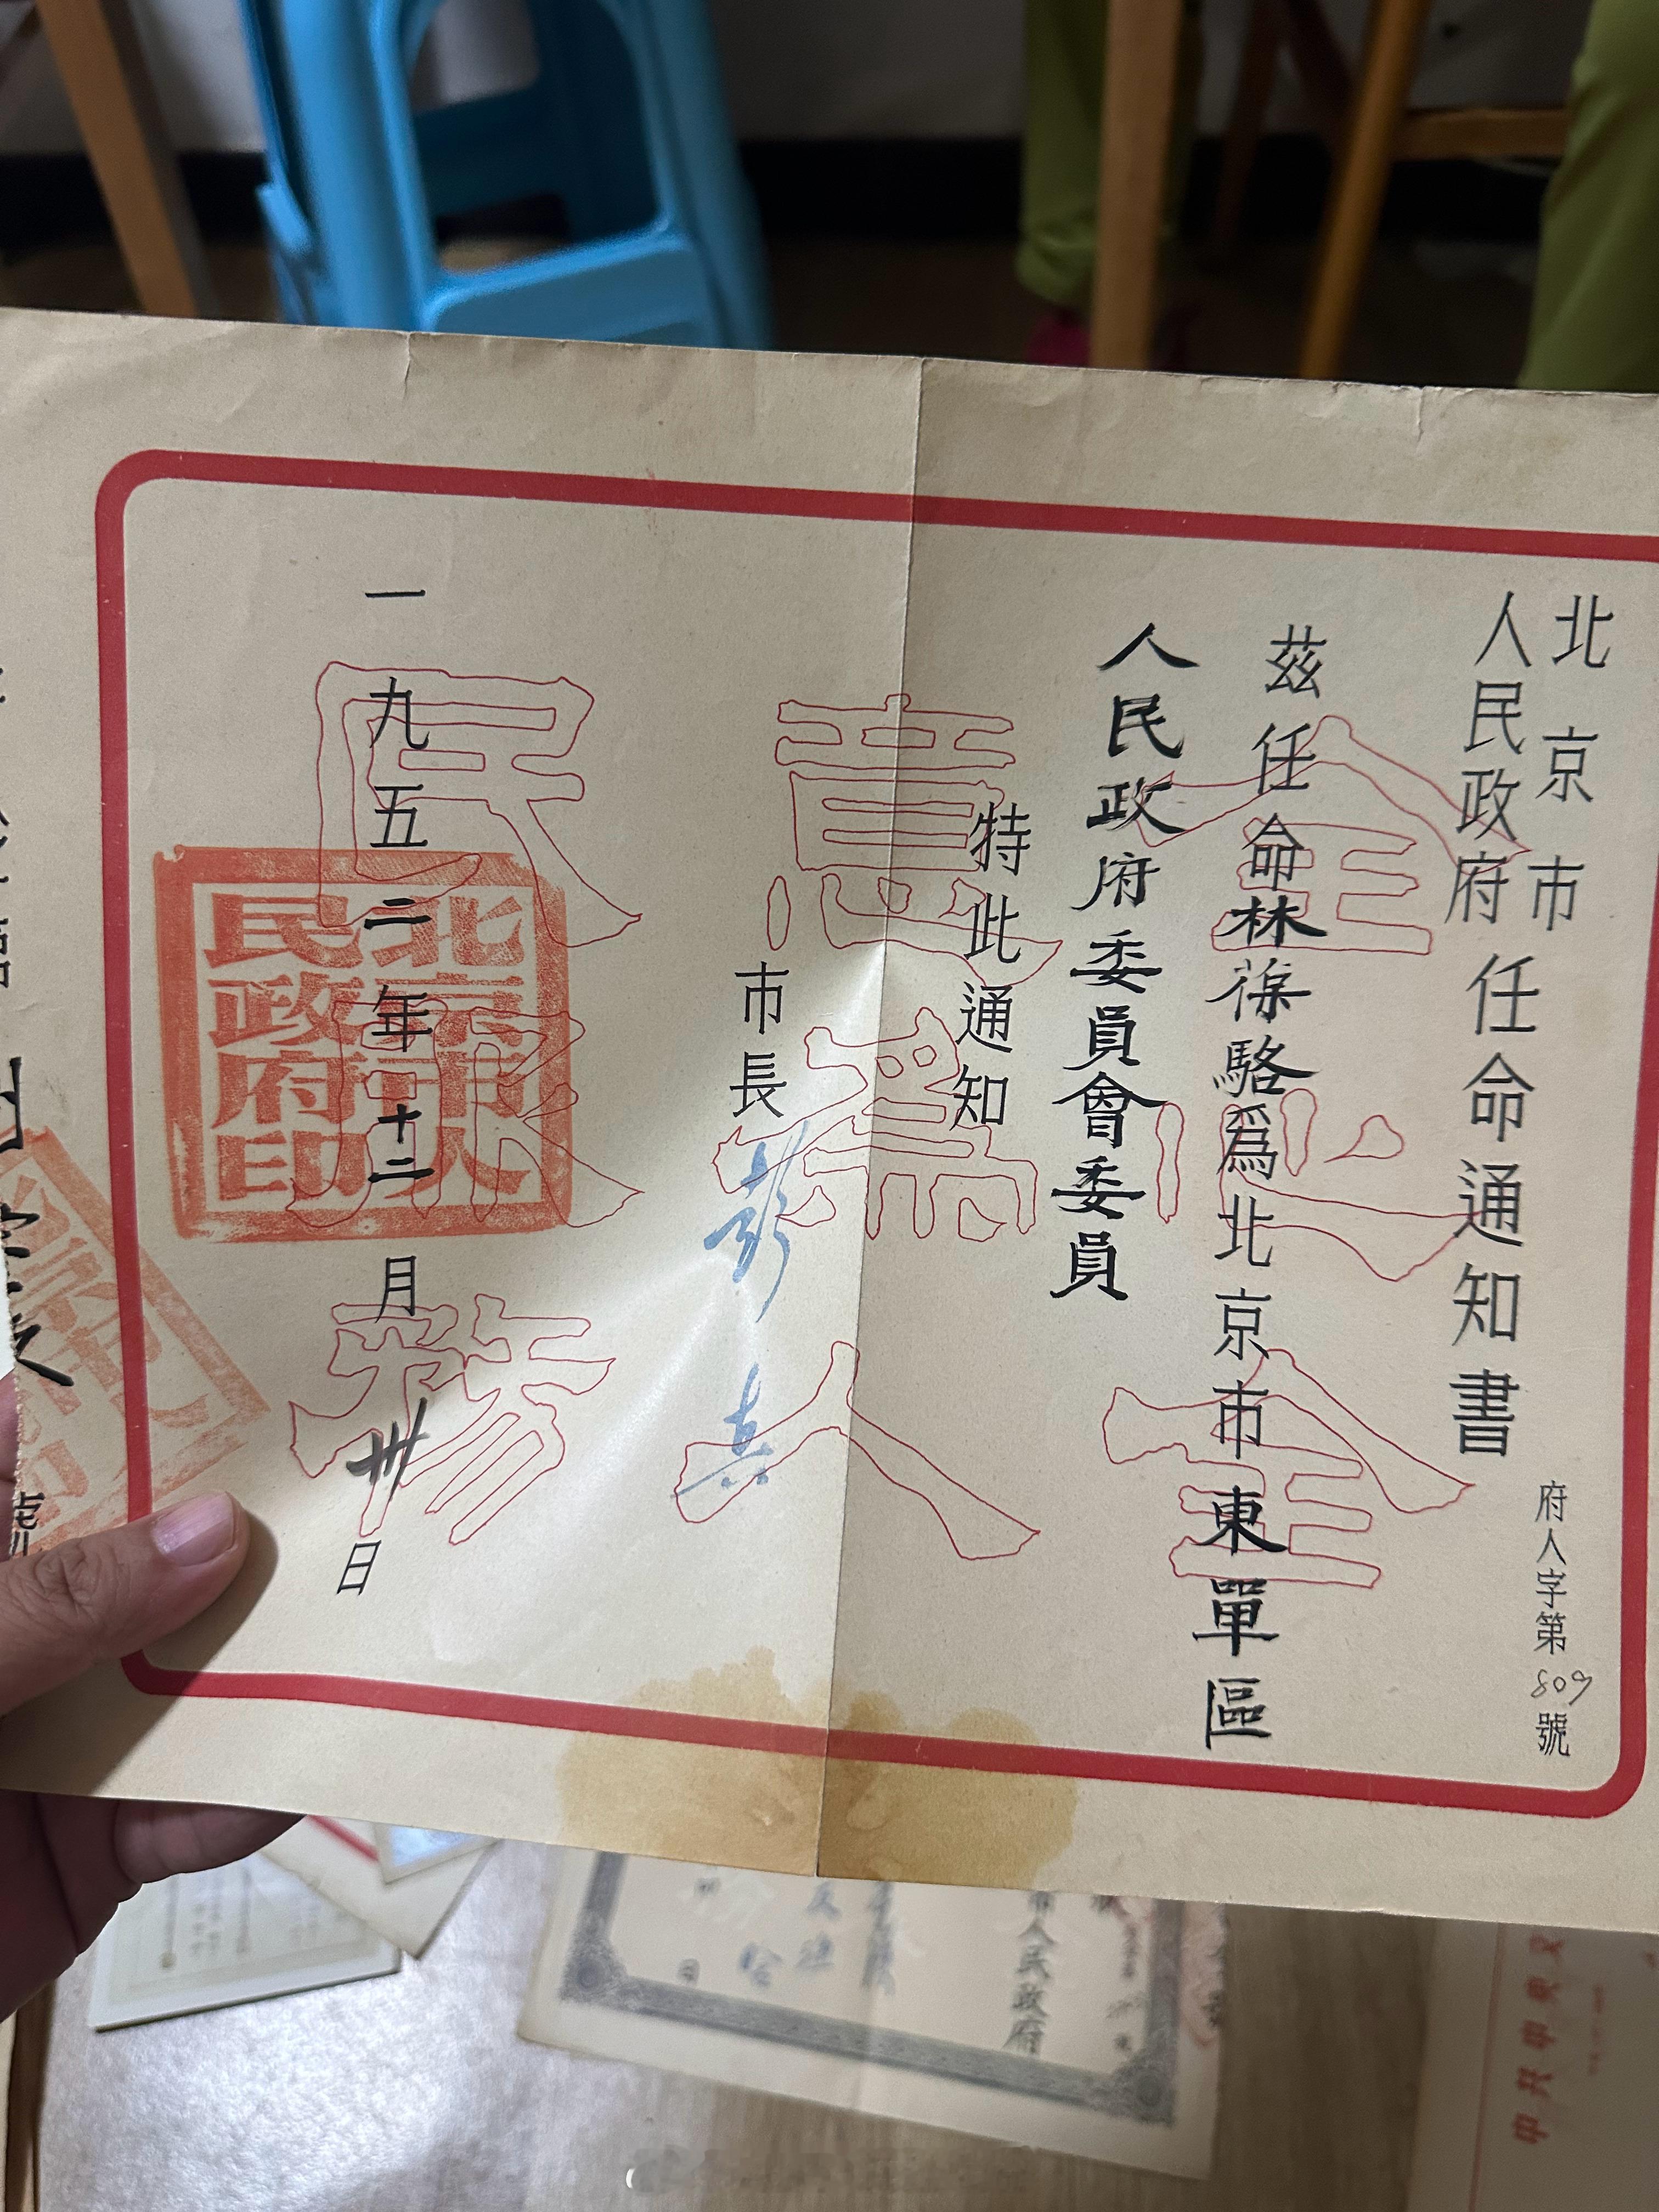 北京市
人民政府
任命通知書
府人字第809號
茲任命林葆駱爲北京市東單區
人民政府委員會委員
特此通知
市長 彭真
一九五二年十二月卅日
北京市人民政府印
全心全意為人民服務
市人民政府
日
中共中央文